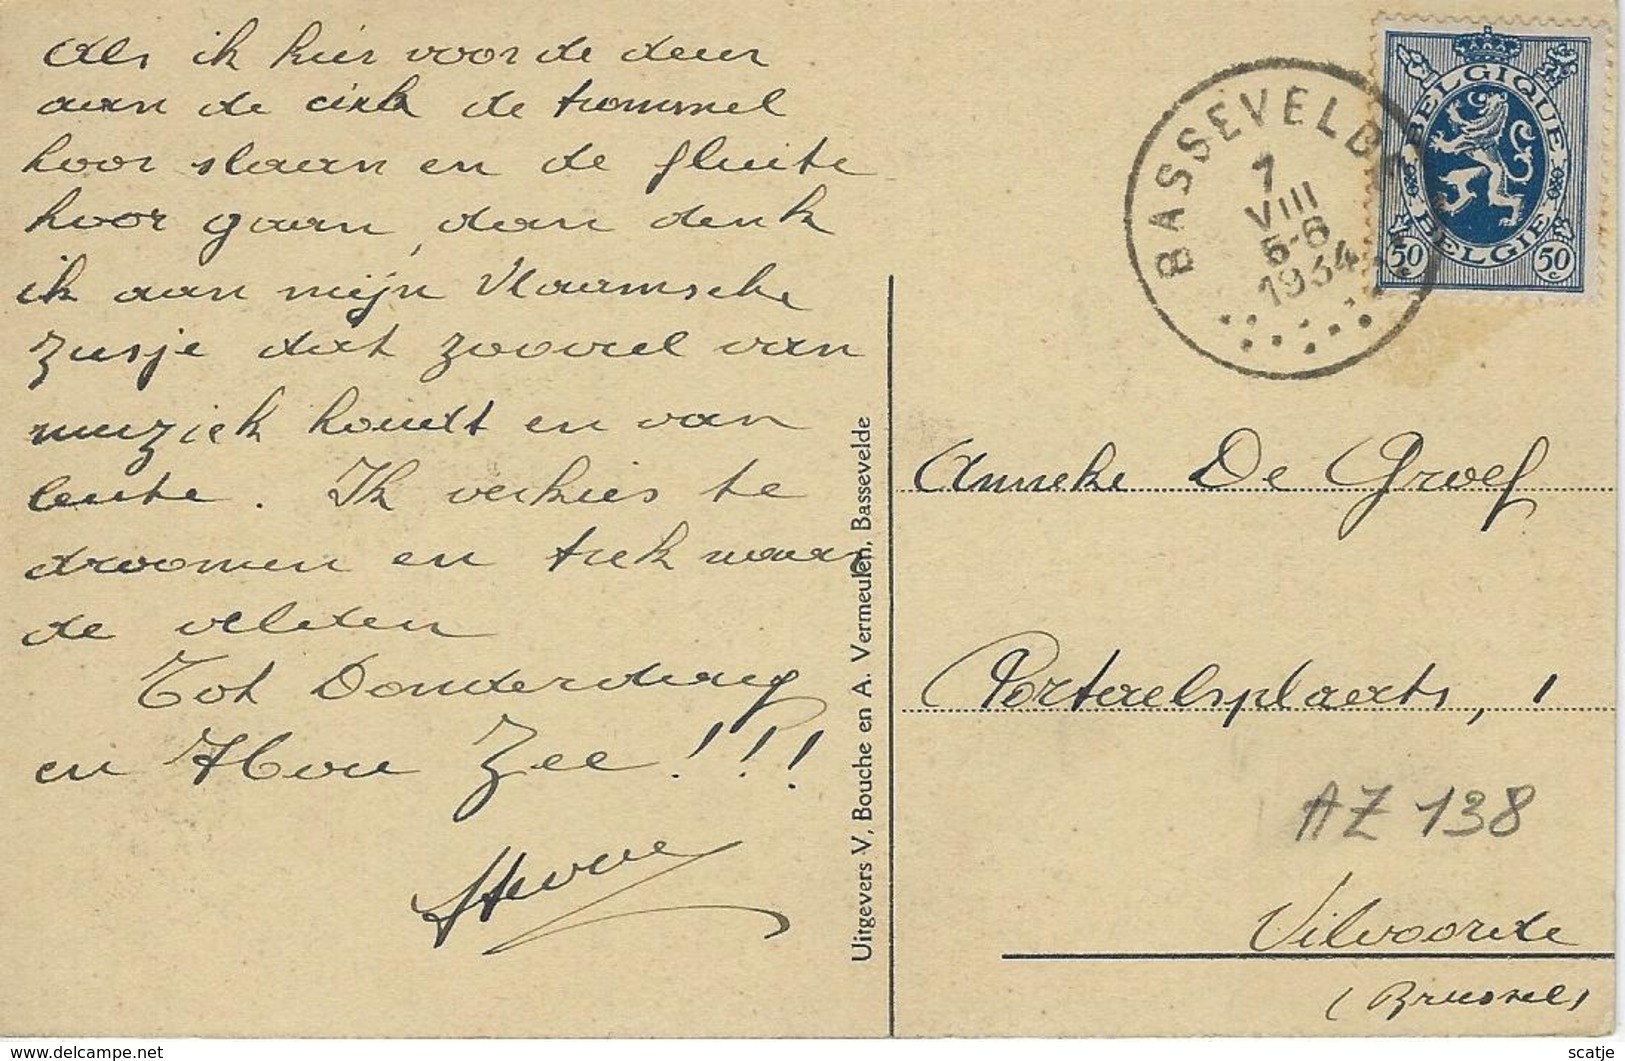 Als ik hier voor de deur
aan de cirk de trommel
hoor slaan en de fluite
hoor gaan, dan denk
ik aan mijn Vlaamsche
zusje dat zooveel van
muziek houdt en van
leute. Ik verkies te
droomen en trek naar
de velden
Tot Donderdag
en Hou Zee!!!
BASSEVELDE
7
VIII
5-6
1934
BELGIQUE
BELGIE
50c
50c
Uitgevers V, Bouche en A. Vermeulen, Bassevelde
Anneke De Groef
Portaelsplaats, 1
AZ 138
Vilvoorde
(Brussel)
www.delcampe.net
scatje